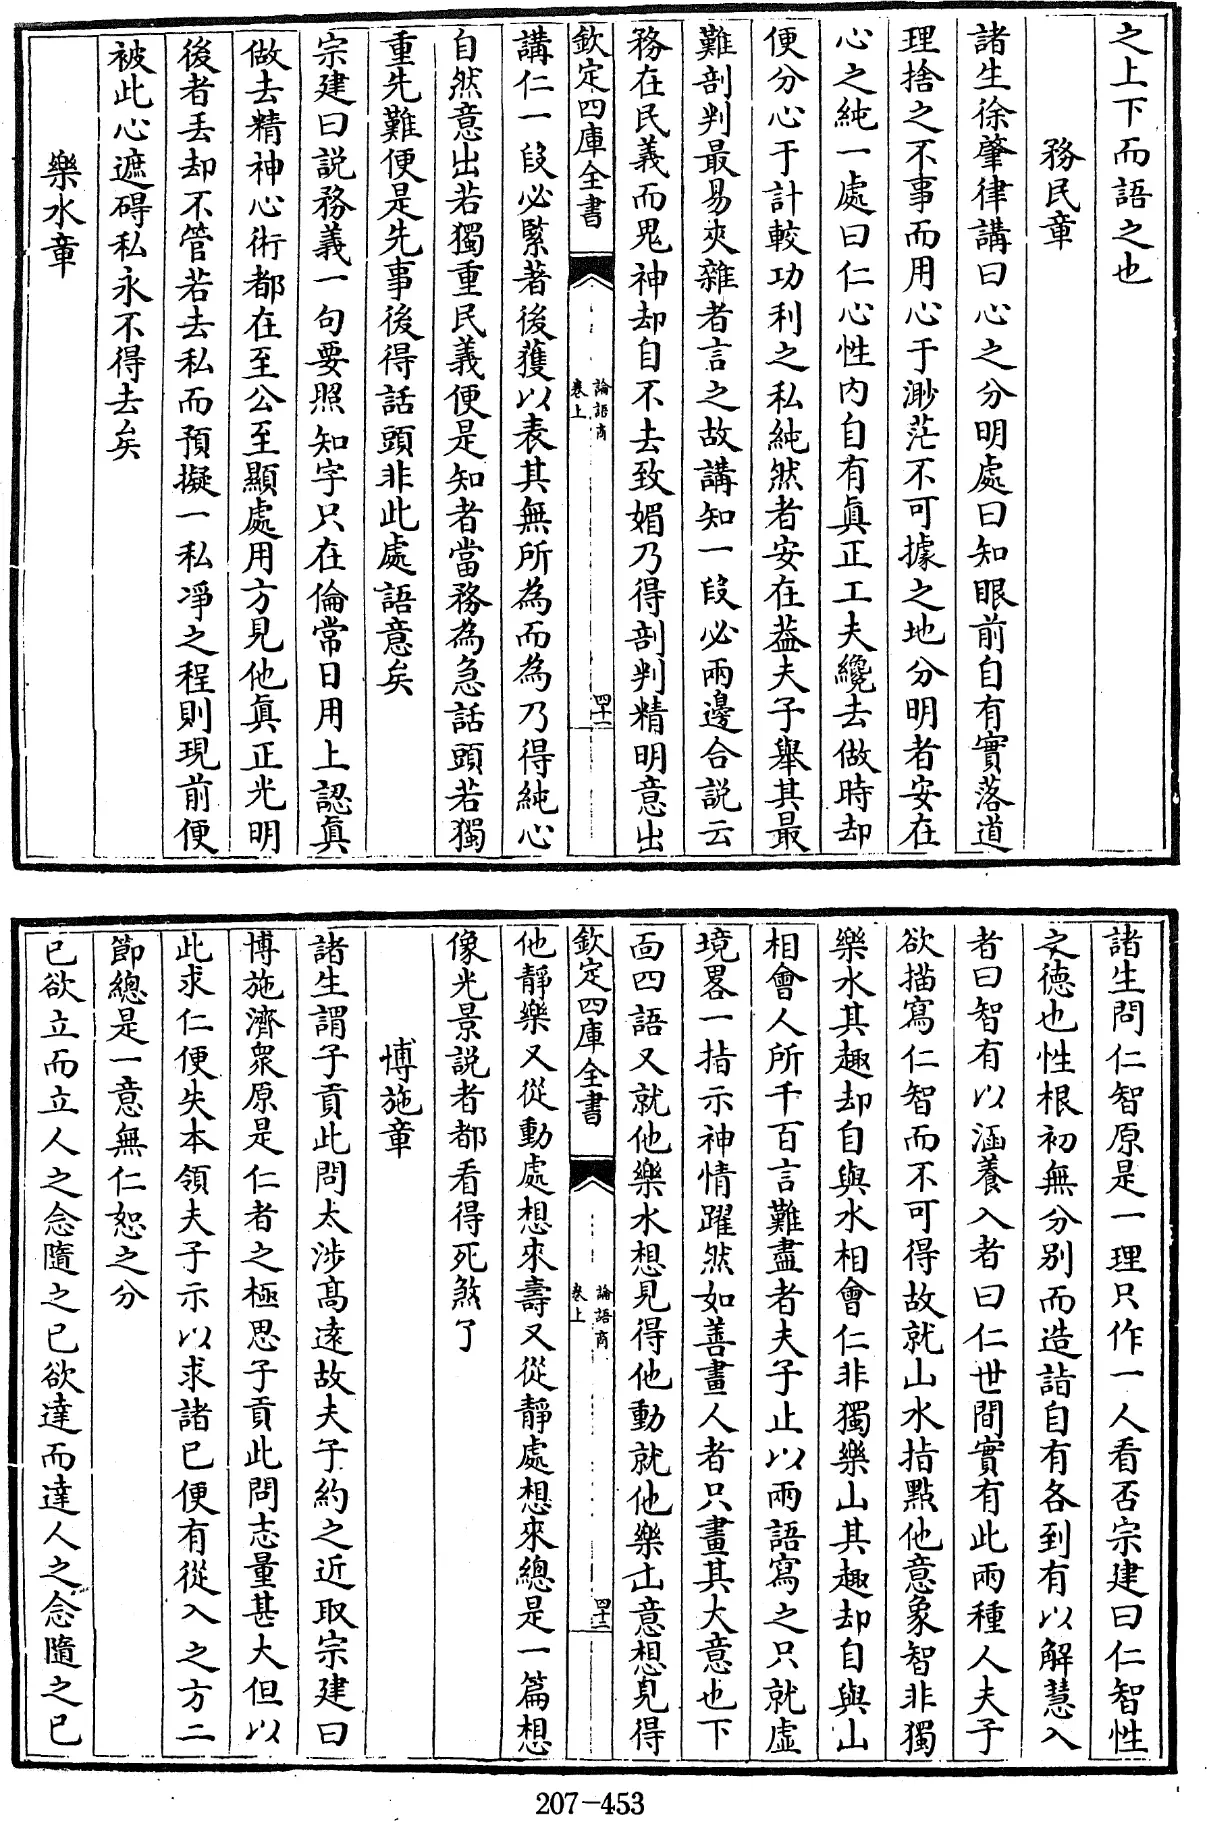 之上下而語之也
務民章
諸生徐肇律講曰心之分明處曰知眼前自有實落道
理捨之不事而用心于渺茫不可據之地分明者安在
心之純一處曰仁心性内自有眞正工夫纔去做時却
便分心于計較功利之私純然者安在葢夫子舉其最
難剖判最易夾雜者言之故講知一段必兩邊合説云
務在民義而鬼神却自不去致媚乃得剖判精明意出
欽定四庫全書
論語商
卷上
四十二
講仁一段必緊著後獲以表其無所為而為乃得純心
自然意出若獨重民義便是知者當務為急話頭若獨
重先難便是先事後得話頭非此處語意矣
宗建曰説務義一句要照知字只在倫常日用上認眞
做去精神心術都在至公至顯處用方見他眞正光明
後者丢却不管若去私而預擬一私凈之程則現前便
被此心遮碍私永不得去矣
樂水章
諸生問仁智原是一理只作一人看否宗建曰仁智性
之德也性根初無分别而造詣自有各到有以解慧入
者曰智有以涵養入者曰仁世間實有此兩種人夫子
欲描寫仁智而不可得故就山水指點他意象智非獨
樂水其趣却自與水相會仁非獨樂山其趣却自與山
相會人所千百言難盡者夫子止以兩語寫之只就虚
境畧一指示神情躍然如善畫人者只畫其大意也下
面四語又就他樂水想見得他動就他樂山意想見得
欽定四庫全書
論語商
卷上
四十三
他靜樂又從動處想來壽又從靜處想來總是一篇想
像光景説者都看得死煞了
博施章
諸生謂子貢此問太涉高遠故夫子約之近取宗建曰
博施濟衆原是仁者之極思子貢此問志量甚大但以
此求仁便失本領夫子示以求諸已便有從入之方二
節總是一意無仁恕之分
已欲立而立人之念隨之已欲達而達人之念隨之已
207-453